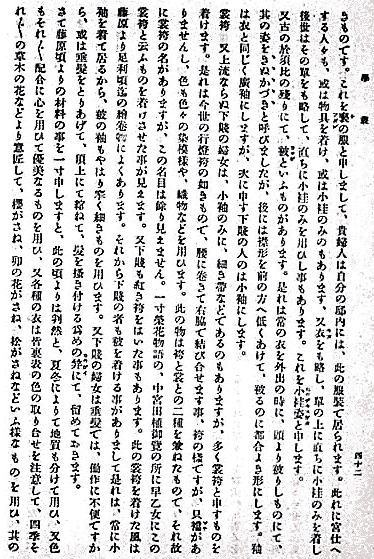 學叢
四十二
きものです。これを褻の服と申しまして、貴婦人は自分の邸内には、此の服裝で居られます。此れに宮仕へ
する人々も、或は物具を着け、或は小袿のみのもあります、又衣をも略し、單の上に直ちに小袿のみを着
後世はその單をも略して、直ちに小袖の上に小袿のみを用ひし事もあります。これを小袿姿と申します。
又古の於須比の殘りにて、被といふものがあります。是れは常の衣を外出の時に、頭より被りしものにて、
其の姿をきぬかづきと呼びましたが、後には襟形を前の方へ低くあけて、被るのに都合よき形にします。袖
は衣と同じく廣袖にしますが、次に申す下賤の人のは小袖にします。
裳袴 又上流ならぬ下賤の婦女は、小袖のみに、細き帶などであるのもありますが、多く裳袴と申すものを
着けます。是れは今世の行燈袴の如きもので、腰に卷きて右脇で結び合せます事、袴の樣ですが、只襠があ
りませんし、色も色々の染模樣や、織物などを用ひます。此の物は袴と裳との二種を兼ねたもので、それ故
に裳袴の名がありますが、この名目は餘り見えません。一寸榮花物語の、中宮田植御覽の所に早乙女にこの
裳袴と云ふものを着けさせた事が見えます。又下賤も紅き袴をはいた事もあります。此の裳袴を着けた風は
藤原より足利頃迄の繪卷物によくあります。それから下賤の者も被を着ける事がありまして是れは、常に小
袖を着て居るから、被の袖もやはり窄く細きものを用ひます。又下賤の婦女は垂髮では、働作に不便ですか
ら、或は垂髮をとりあげて、頂上にて綰ねて、髮を搔き付ける爲めの笄にて、留めておきます。
さて藤原頃よりの材料の事を一寸申しますと、此の頃よりは判然と、夏冬によりて地質も分けて用ひ、又色
もそれ〲配合に心を用ひて優美なるものを用ひ、又各種の衣は皆裏表の色の取り合せを注意して、四季そ
れ〲の草木の花などより意匠して、櫻がさね、卯の花がさね、松がさねなどいふ樣なものを用ひ、其の